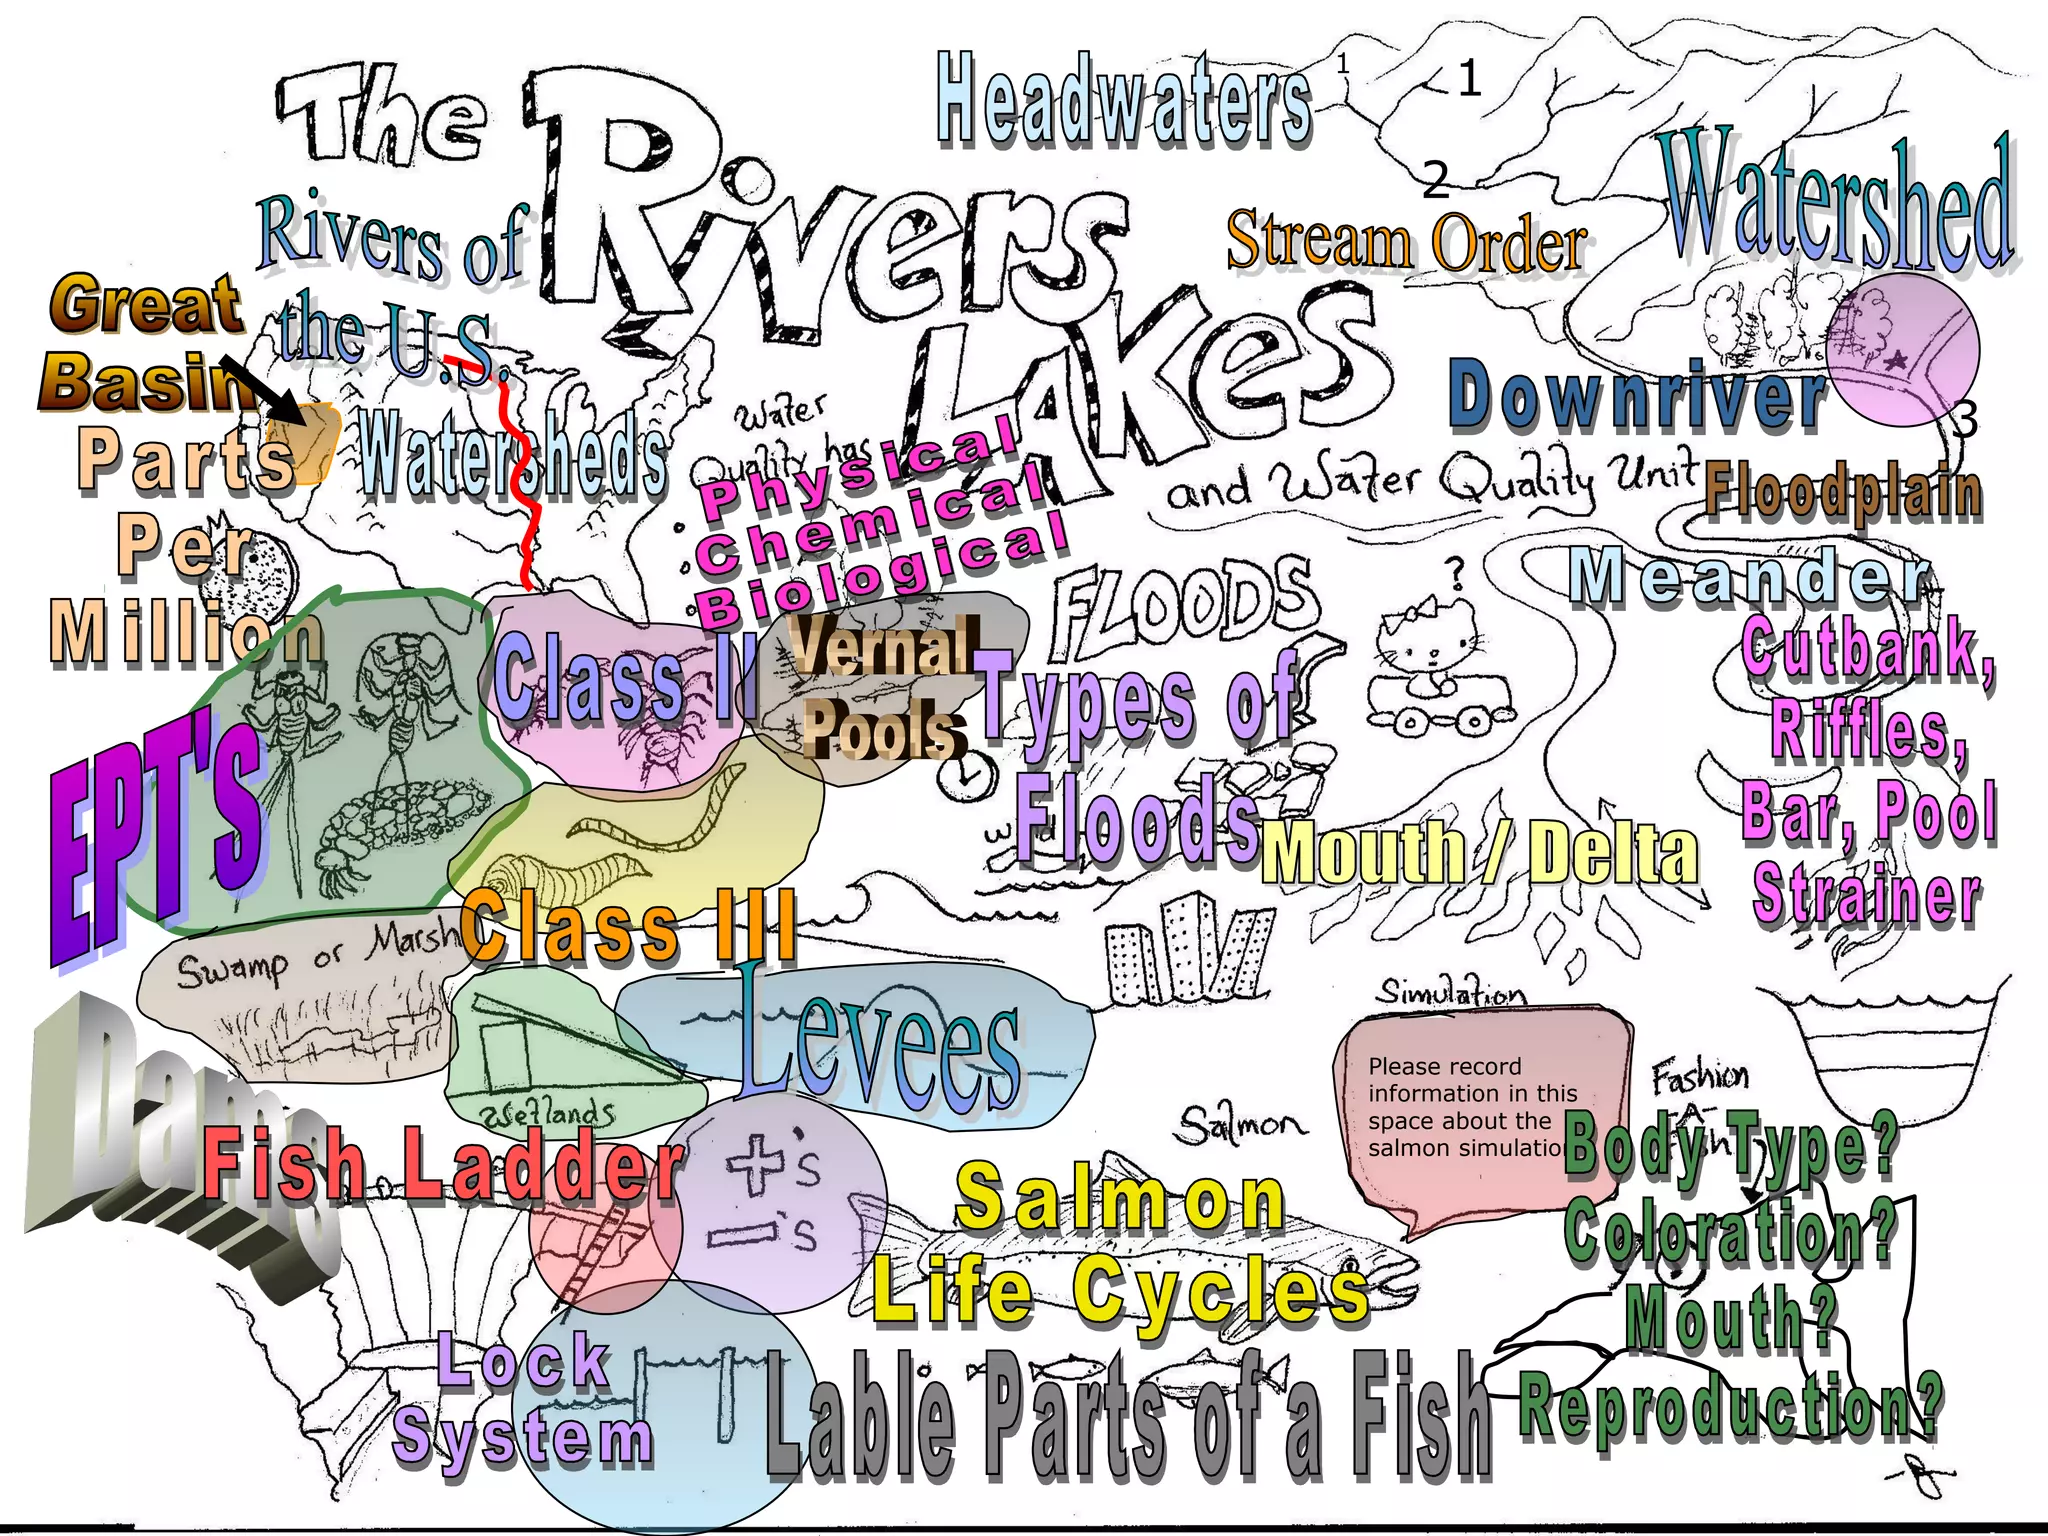 The
Rivers
Lakes
and Water Quality Unit
Headwaters
1
1
2
Stream Order
Watershed
Rivers of
the U.S.
Great
Basin
Watersheds
Downriver
3
Floodplain
Parts
Per
Million
Water
Quality has
Physical
Chemical
Biological
FLOODS
?
Meander
Cutbank,
Riffles,
Bar, Pool
Strainer
Class II
Vernal
Pools
Types of
Floods
EPT's
Mouth / Delta
Class III
Swamp or Marsh
Levees
Dams
Wetlands
Simulation
Please record
information in this
space about the
salmon simulation
Fashion
-A-
Fish
Body Type?
Coloration?
Mouth?
Reproduction?
Fish Ladder
+'s
-'s
Salmon
Salmon
Life Cycles
Lock
System
Lable Parts of a Fish